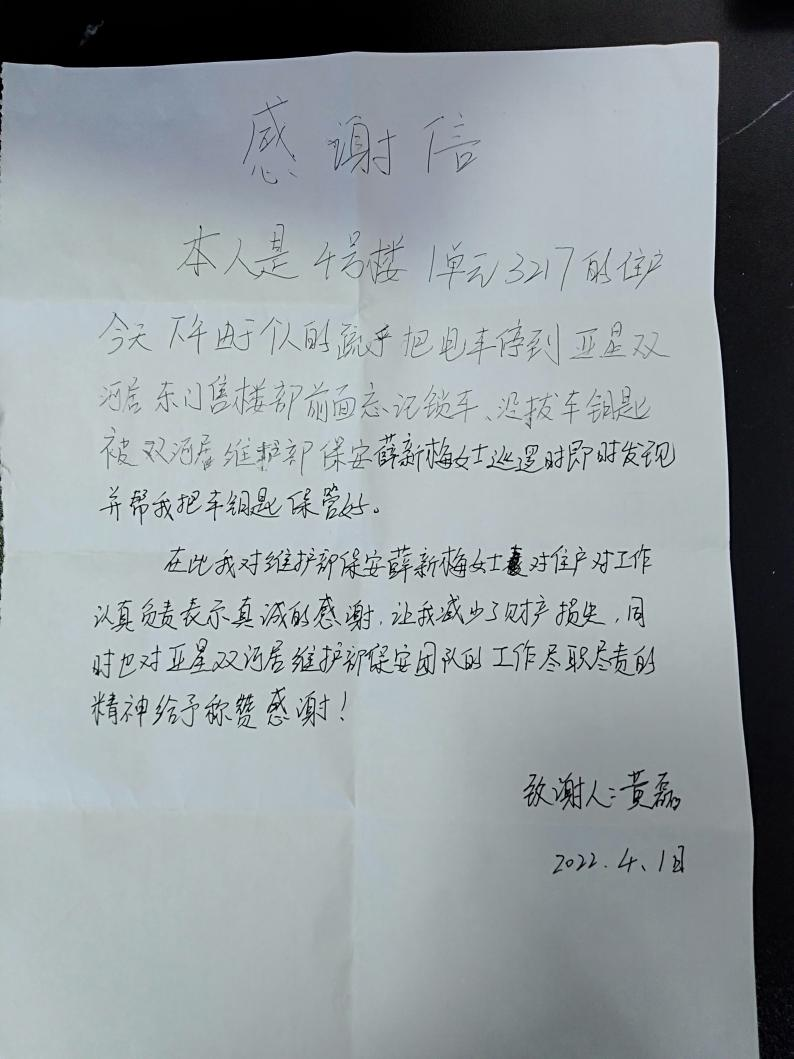 感谢信
本人是4号楼1单元3217的住户
今天下午由于个人的疏乎把电车停到亚星双
河居东门售楼部前面忘记锁车、没拔车钥匙
被双河居维护部保安薛新梅女士巡逻时即时发现
并帮我把车钥匙保管好。
在此我对维护部保安薛新梅女士对住户对工作
认真负责表示真诚的感谢,让我减少了财产损失,同
时也对亚星双河居维护部保安团队的工作尽职尽责的
精神给予称赞感谢!
致谢人:黄磊
2022.4、1日